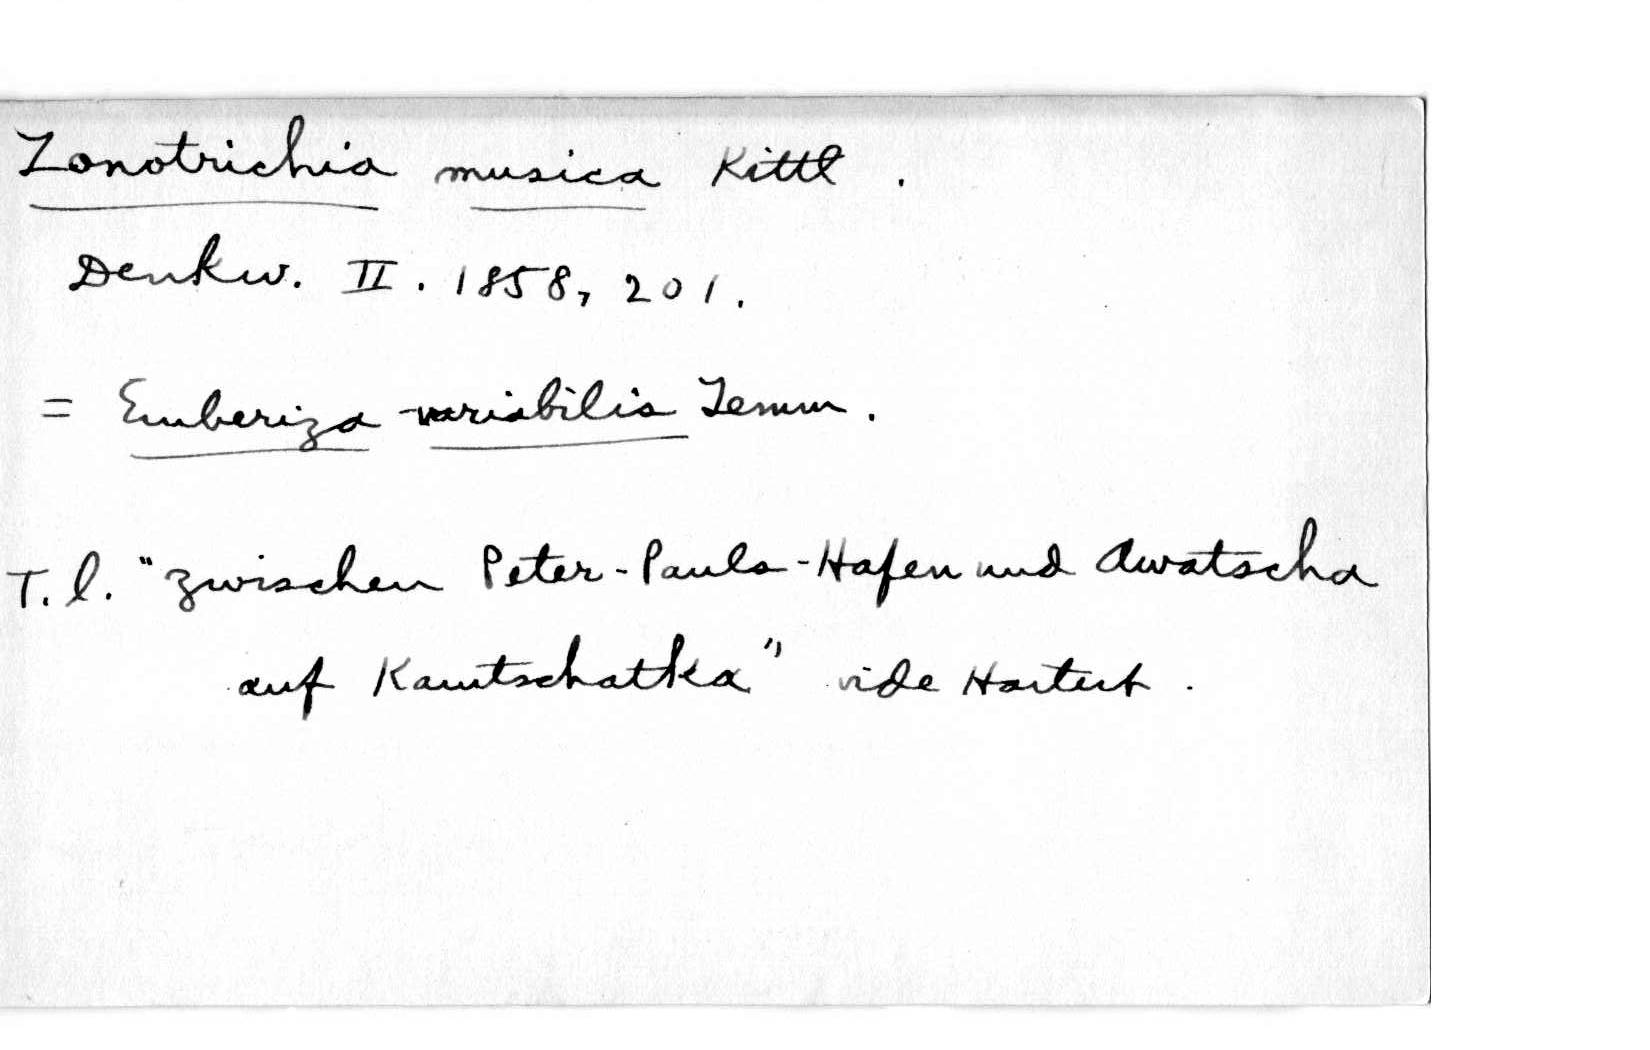 Zonotrichia musica Kittl.
Denkw. II. 1858, 201.
= Emberiza variabilis Temm.
T. l. "zwischen Peter-Pauls-Hafen und Awatscha
auf Kamtschatka" vide Hartert.